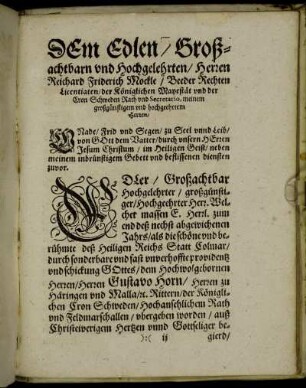 DEm Edlen / Groß-
achtbarn vnd Hochgelehrten / Herren
Reichard Friderich Mockle / Beeder Rechten
Licentiaten, der Königlichen Mayestät vnd der
Cron Schweden Rath vnd Secretario, meinem
großgünstigen vnd hochgeehrtem
Herren /
GNade / Frid vnd Segen / zu Seel vnnd Leib /
von GOtt dem Vatter / durch vnsern HErren
Jesum Christum / im Heiligen Geist / neben
meinem inbrünstigem Gebett vnd beflissenen diensten
zuvor.
WDler / Großachtbar
Hochgelehrter / großgünsti-
ger / Hochgeehrter Herr. Wel-
cher massen E. Herrl. zum
end deß nechst abgewichenen
Jahrs / als die schöne vnd be-
rühmte deß Heiligen Reichs Statt Colmar /
durch sonderbare vnd fast unverhoffte providentz
vnd schickung GOttes / dem Hochwolgebornen
Herren / Herren Gustavo Horn / Herren zu
Häringen vnd Malla / ꝛc. Rittern / der Königli-
chen Cron Schweden / Hochansehlichem Rath
vnd Feldmarschallen / vbergeben worden / auß
Christeiverigem Hertzen vnnd Gottseliger be-
):( ij
gierd /